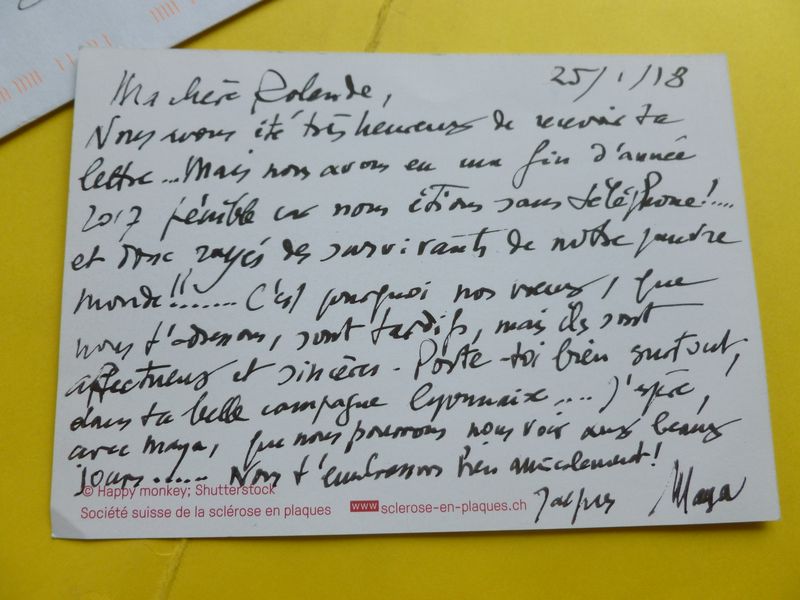 25/1/18
Ma chère Rolande,
Nous avons été très heureux de recevoir ta
lettre...Mais nous avons eu une fin d'année
2017 pénible car nous étions sans téléphone!....
et donc rayés des survivants de notre pauvre
monde!!....... C'est pourquoi nos vœux, que
nous t'adressons, sont tardifs, mais ils sont
affectueux et sincères - Porte-toi bien surtout,
dans ta belle campagne lyonnaise.... J'espère,
avec Maya, que nous pourrons nous voir aux beaux
jours...... Nous t'embrassons bien amicalement!
Jacques Maya
© Happy monkey; Shutterstock
Société suisse de la sclérose en plaques www sclerose-en-plaques.ch